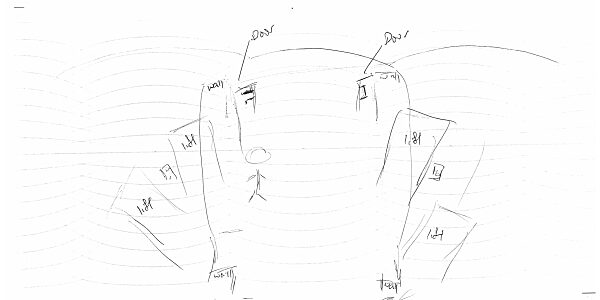 Door
Door
wall
wall
lift
lift
lift
lift
wall
wall